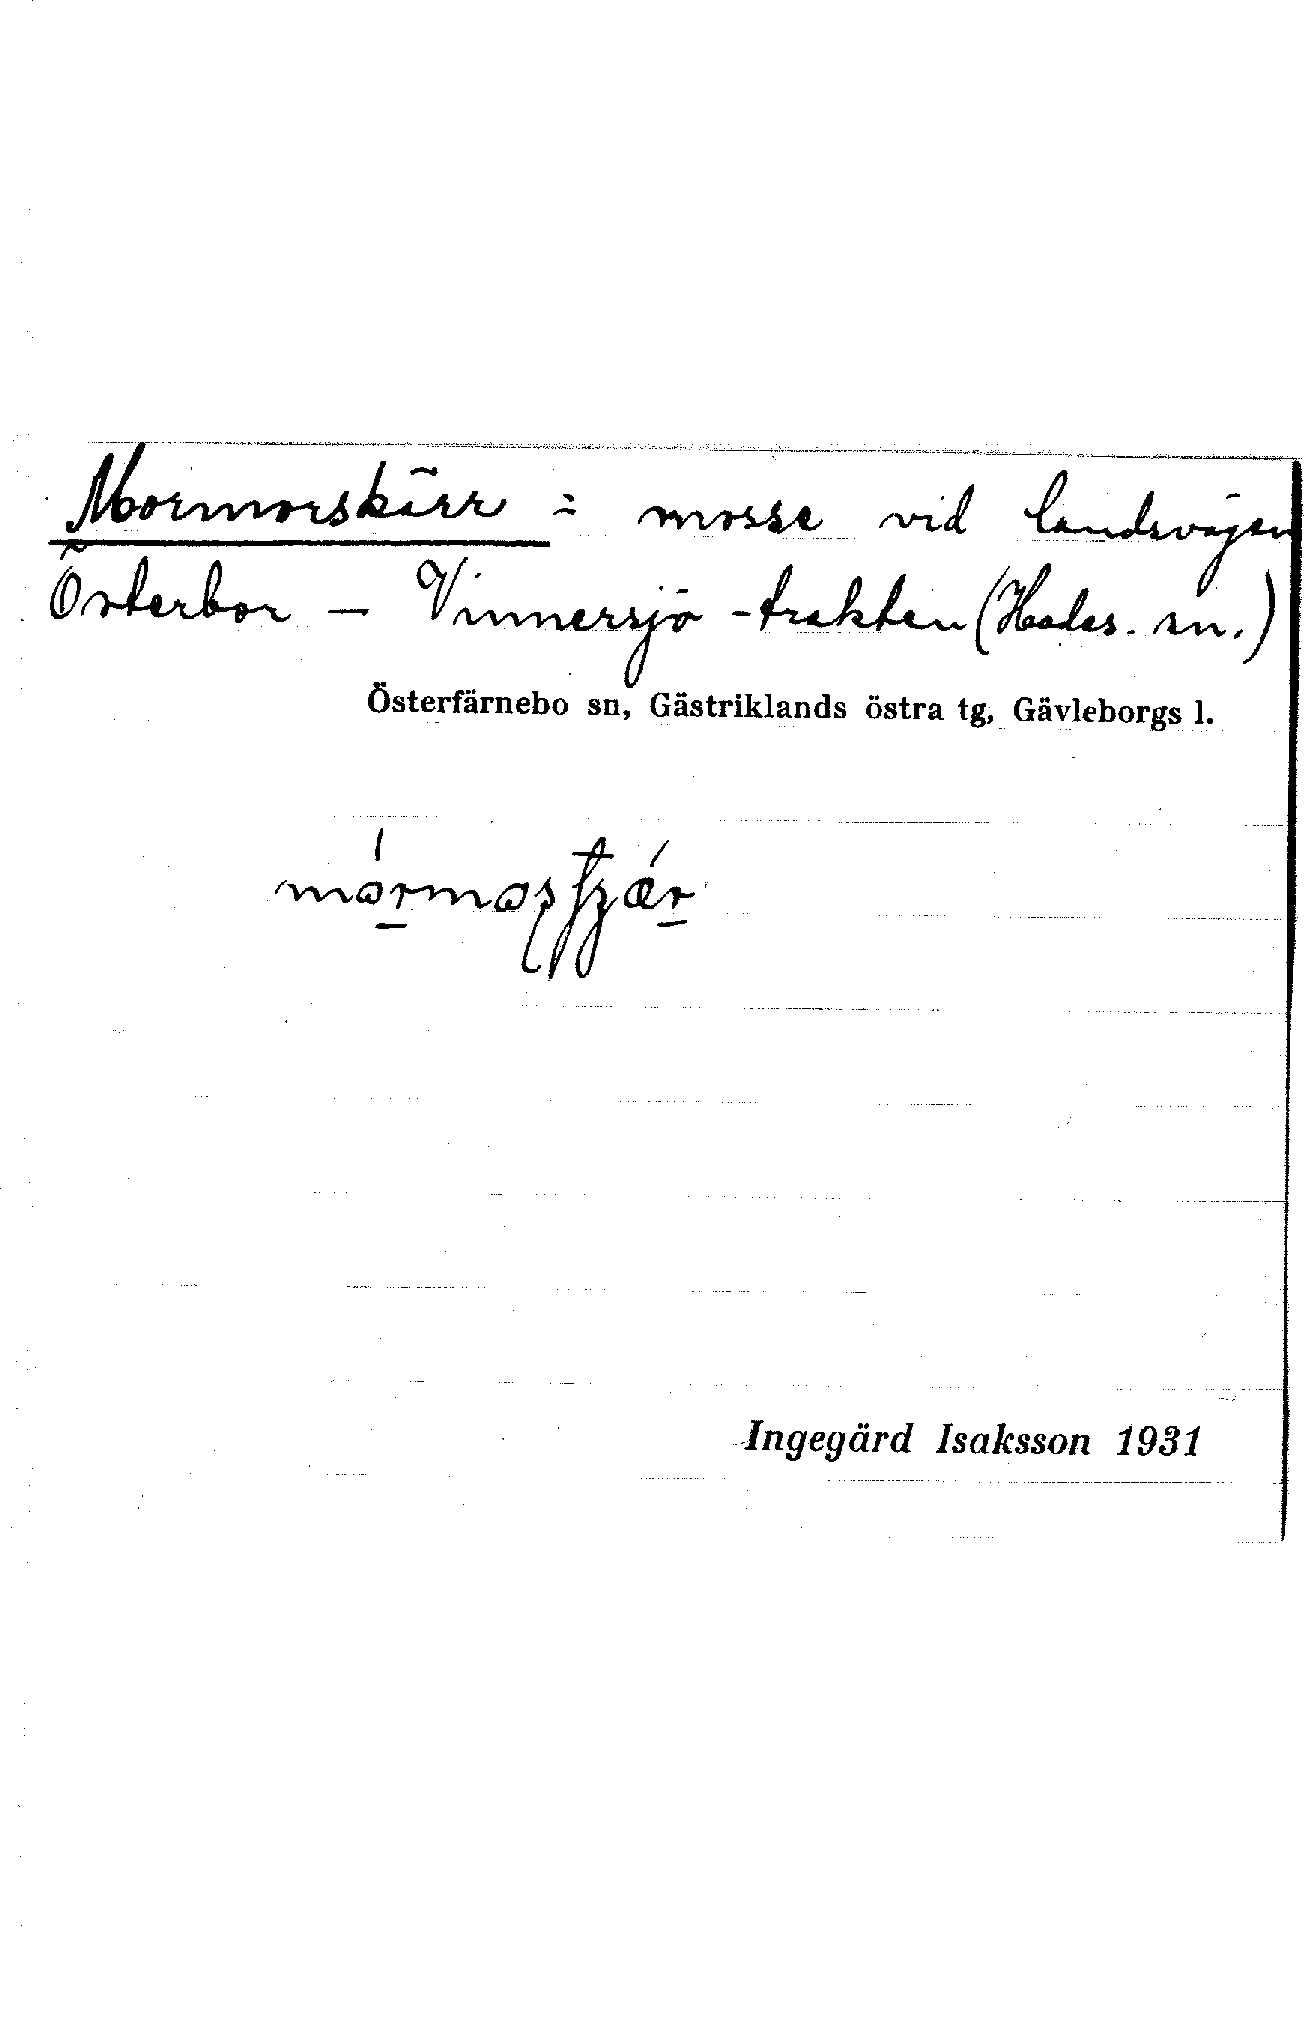 Mormorskärr = mosse vid landsvägen
Österbor - Vinnersjö-trakten (Heds. sn.)
Österfärnebo sn, Gästriklands östra tg, Gävleborgs l.
Ingegärd Isaksson 1931